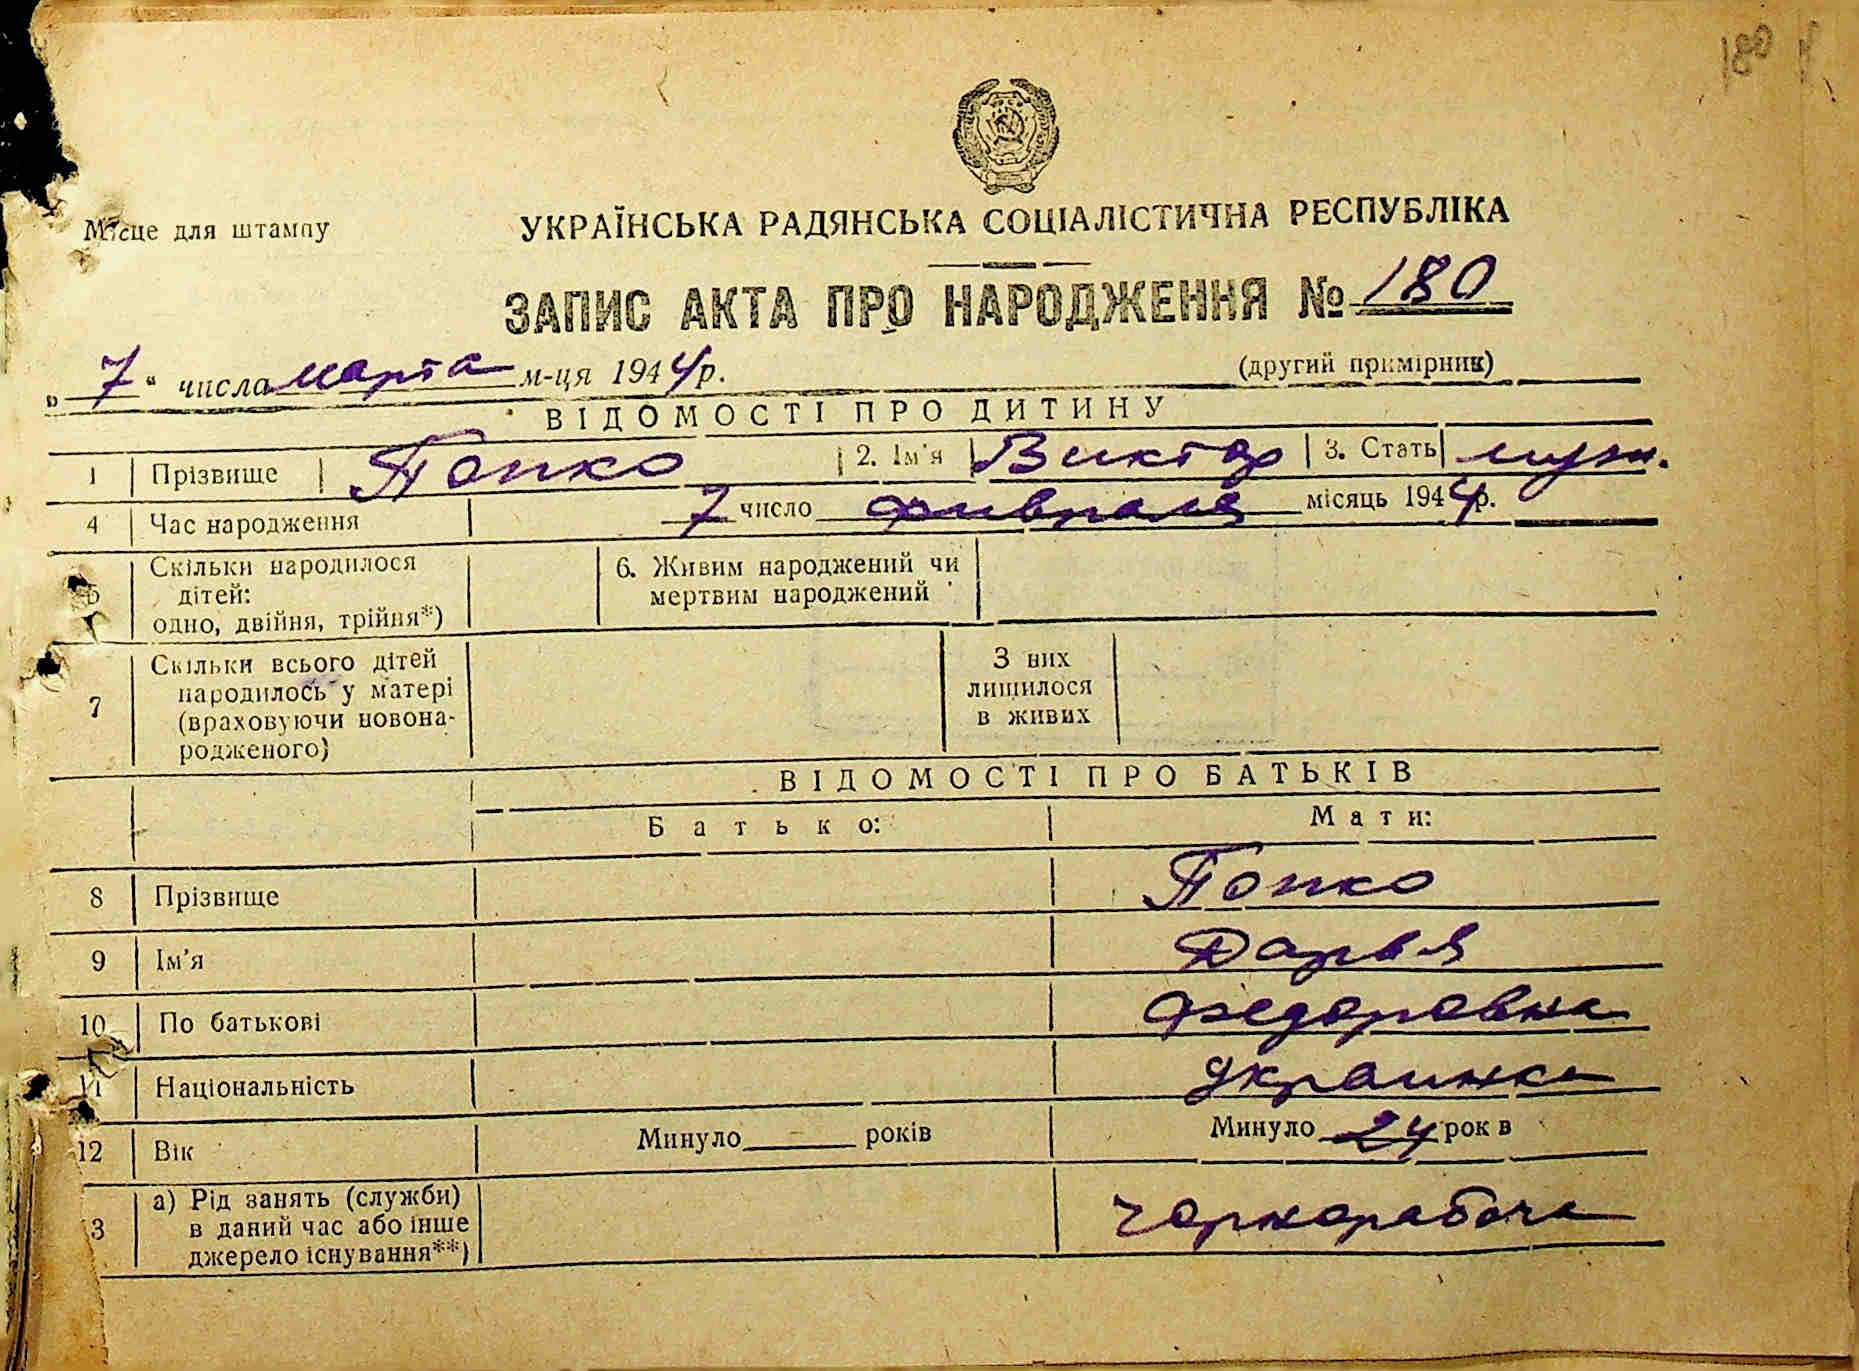 180
Місце для штампу
УКРАЇНСЬКА РАДЯНСЬКА СОЦІАЛІСТИЧНА РЕСПУБЛІКА
ЗАПИС АКТА ПРО НАРОДЖЕННЯ № 180
„ 7 “ числа марта м-ця 1944 р.
(другий примірник)
ВІДОМОСТІ ПРО ДИТИНУ
1 Прізвище Попко 2. Ім'я Виктор 3. Стать муж.
4 Час народження 7 число февраля місяць 1944 р.
5 Скільки народилося дітей: одно, двійня, трійня*) 6. Живим народжений чи мертвим народжений
7 Скільки всього дітей народилось у матері (враховуючи новонародженого) З них лишилося в живих
ВІДОМОСТІ ПРО БАТЬКІВ
Батько: Мати:
8 Прізвище Попко
9 Ім'я Дарья
10 По батькові Федоровна
11 Національність украинка
12 Вік Минуло років Минуло 24 рок в
3 а) Рід занять (служби) в даний час або інше джерело існування**) чорнорабоча